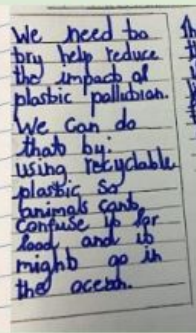 We need to
try help reduce
the impact of
plastic pollution.
We can do
that by:
using recyclable
plastic so
animals cant
confuse it for
food and it
might go in
the ocean.